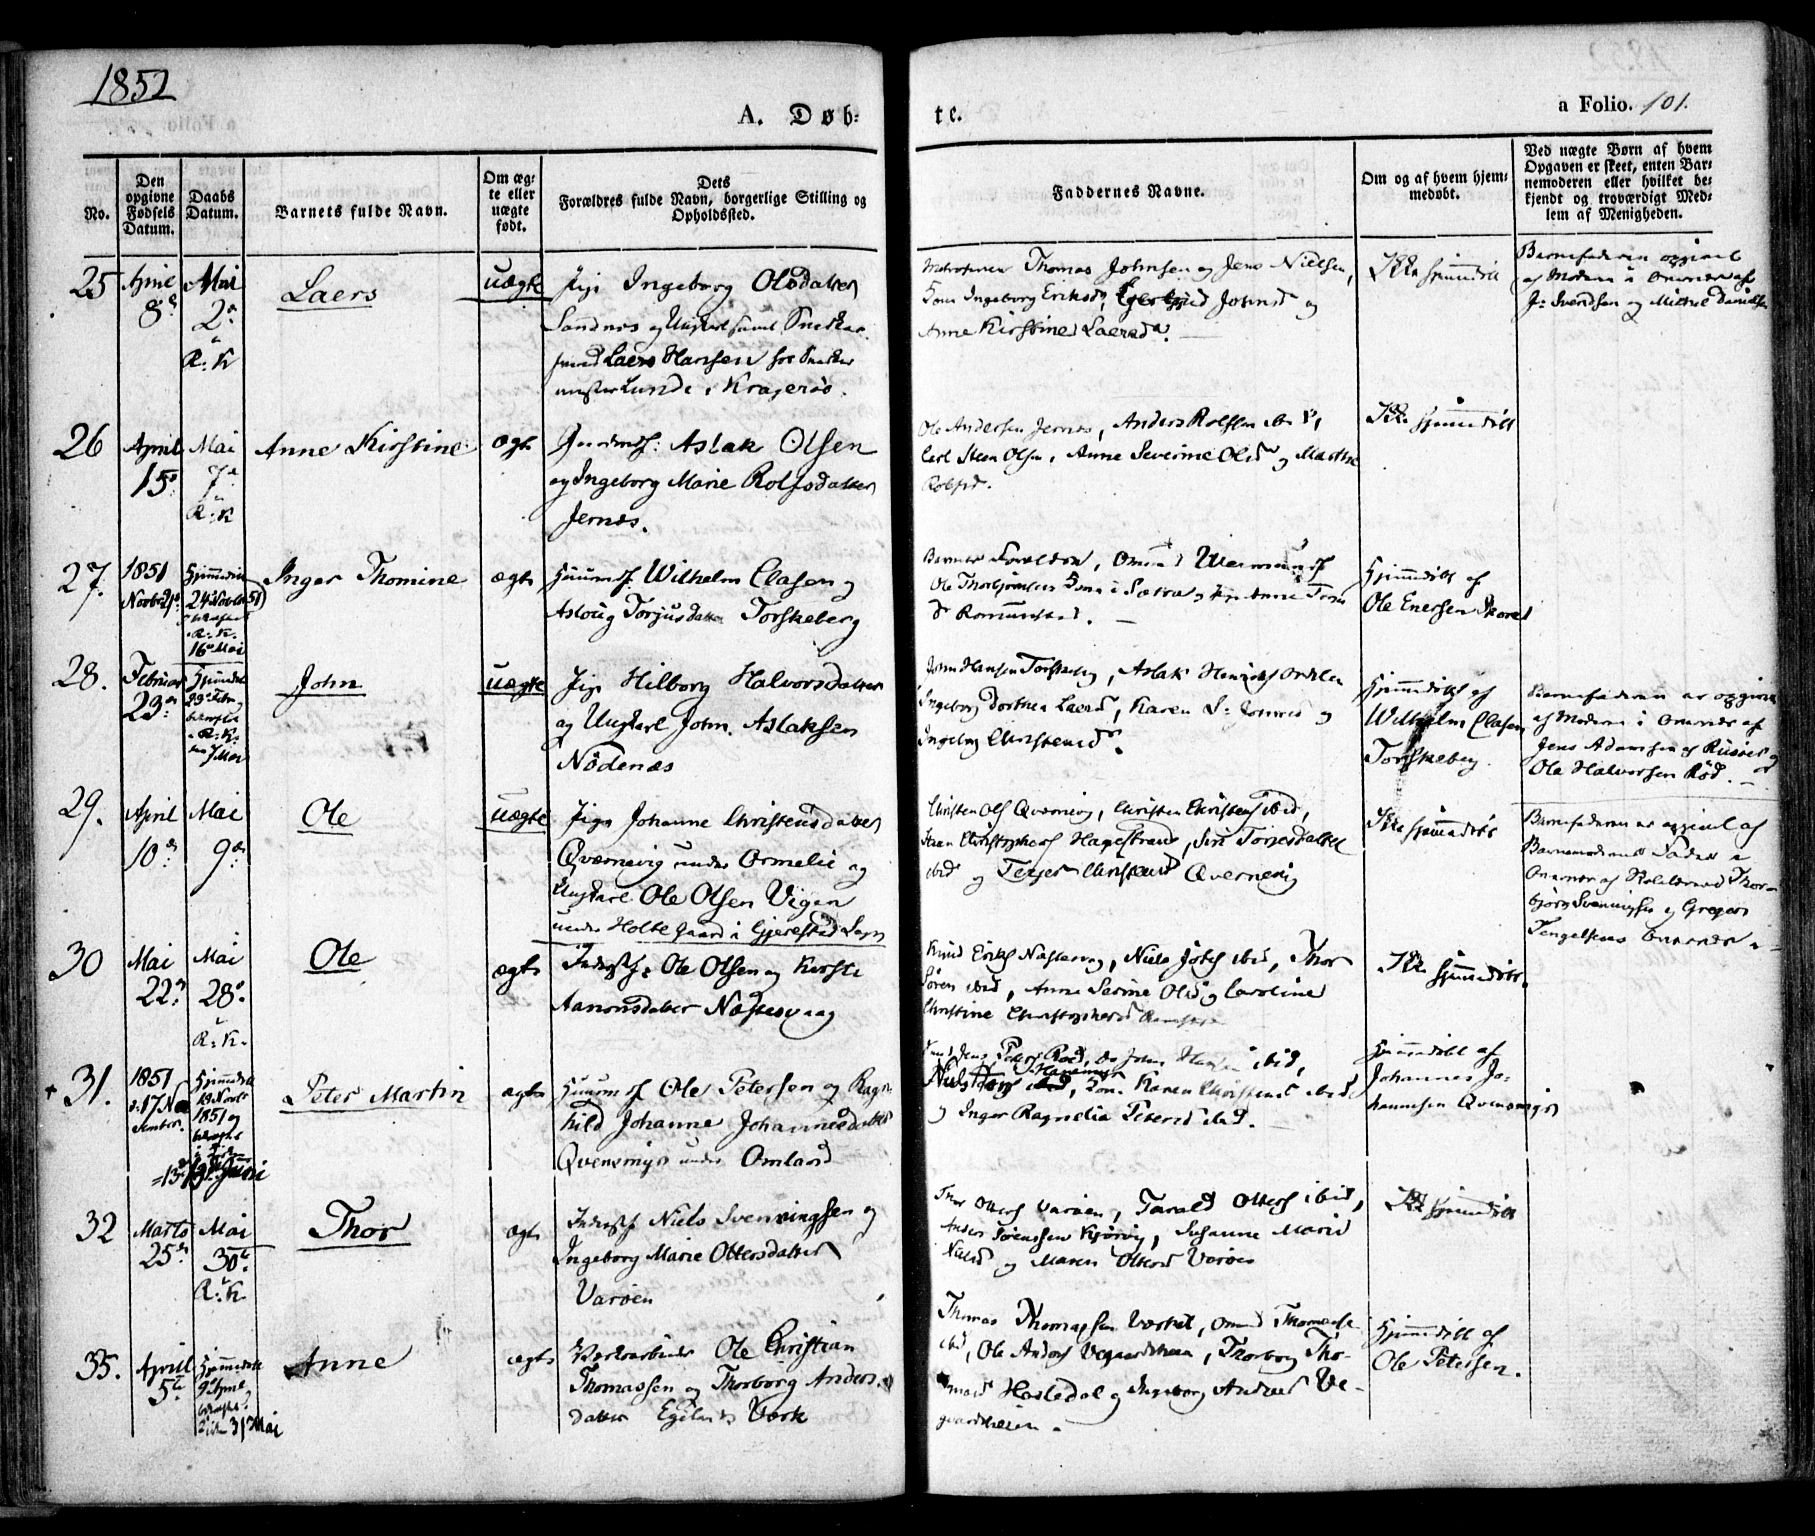 1852
A. Døb-
te.
a Folio. 101.
No.
Den
opgivne
Fødsels
Datum.
Daabs
Datum.
Barnets fulde Navn.
Om æg-
te eller
uægte
født.
Dets
Forældres fulde Navn, borgerlige Stilling og
Opholdssted.
Faddernes Navne.
Om og af hvem hjem-
medøbt.
Ved uægte Børn af hvem
Opgaven er skeet, enten Bar-
nemoderen eller hvilket be-
kjendt og troværdigt Med-
lem af Menigheden.
25
April
8de
Mai
2den
R: K
Laers
uægte
Pige Ingeborg Olsdatter
Sandnes og Ungkarl
Svend Laers Hansen hos Snedker
mester Lunde i Kragerøe.
Thomas Johnsen og Jens Nielsen,
Ingeborg Eriksd, Johnsd og
Anne Kirstine Laersd.
Ikke hjemmedøbt
Barnefaderen opgivet
af Moderen i Overvær af
J: Svendsen og Mikkel Danielsen
26
April
15de
Mai
7de
R: K
Anne Kirstine
ægte
Aslak Olsen
og Ingeborg Marie Rolfsdatter
Jernæs.
Ole Andersen Jernæs, Anders Rolfsen ibid,
Carl Steen Olsen, Anne Severine Olsd og Marthe
Rolfsd.
Ikke hjemmedøbt
27.
1851
Novbr 21de
Hjemmedøbt
24 Novbr 51
R: K.
16de Mai
Inger Thomine
ægte
Huusmd Wilhelm Clasen og
Asloug Torjusdatter Torskeberg
Barnets Forældre,
Ole Thorbjørnsen i Sætra og Pige Anne
Hjemmedøbt af
Ole Enersen
28.
Februar
23de
Hjemmedøbt
29de Febr
R: K.
7 Mai
John
uægte
Pige Hilborg Halvorsdatter
og Ungkarl John Aslaksen
Nødenæs
John Hansen Torskeberg, Aslak
Ingeborg Dorthea Laersd, Karen og
Ingeborg Christensd.
Hjemmedøbt af
Wilhelm Clasen
Torskeberg.
Barnefaderen er opgiven
af Moderen i Overvær af
Jens Adamsen af Risøer og
Ole Halvorsen Rød.
29.
April
10de
Mai
9de
Ole
uægte
Pige Johanne Christensdatter
Qværnevig under Ormelie og
Ungkarl Ole Olsen Vigen
under Holte Gaard i Gjerestad Sogn
Christen Ols Qvernevig, Christen Christens ibid,
Christophers Hagestrand, Siri Torjesdatter
ibid og Terjer Christensd Qvernevig
Ikke hjemmedøbt
Barnefaderen er opgivet af
Barnemoderens Fader i
Overvær af Thor-
bjørn Svenningsen og Gregers
Tengelsens Overvær
30
Mai
22de
Mai
28de
R: K.
Ole
ægte
Inderst: Ole Olsen og Kirsti
Aanonsdatter Næstesvaag
Knud Eriks Næstesvaag, Niels Jobs ibid, Thor
Søren ibid, Anne Serine Olsd og Caroline
Christine Christophersd
Ikke hjemmedøbt.
+ 31.
1851
d: 17 No
vember.
Hjemmedøbt
19 Novbr
1851 og
=13de Juni
Peter Martin
ægte
Huusmd Ole Petersen og Ragn-
hild Johanne Johannesdatter
Qvensmyr under Omland
Jens Peders Roed, ibid,
Niels ibid, Karen Christensd ibid
og Inger Ragnelia Petersd ibid.
Hjemmedøbt af
Johannes Jo-
hannesen Qvensmyr
32
Marts
25de
Mai
30te
R: K
Thor
ægte
Inderst Niels Svenningsen og
Ingeborg Marie Ottersdatter
Varøen
Thor Otters Varøen, Tarald Otters ibid,
Anders Sørenssen, Susanne Marie
Nielsd og Maren Ottersd Varøen
Ikke hjemmedøbt
35.
April
5te
Hjemmedøbt
9de April
31 Mai
Anne
ægte
Værksarbeider Ole Christian
Thomassen og Thorborg Anders-
datter Egelands Værk
Thomas Thomassen Værket, Thomassen
ibid, Ole Anders Vegaardsheien, Thorborg Tho-
masd Hasledal og Ingeborg Andersd Ve-
gaardsheien.
Hjemmedøbt af
Ole Petersen.